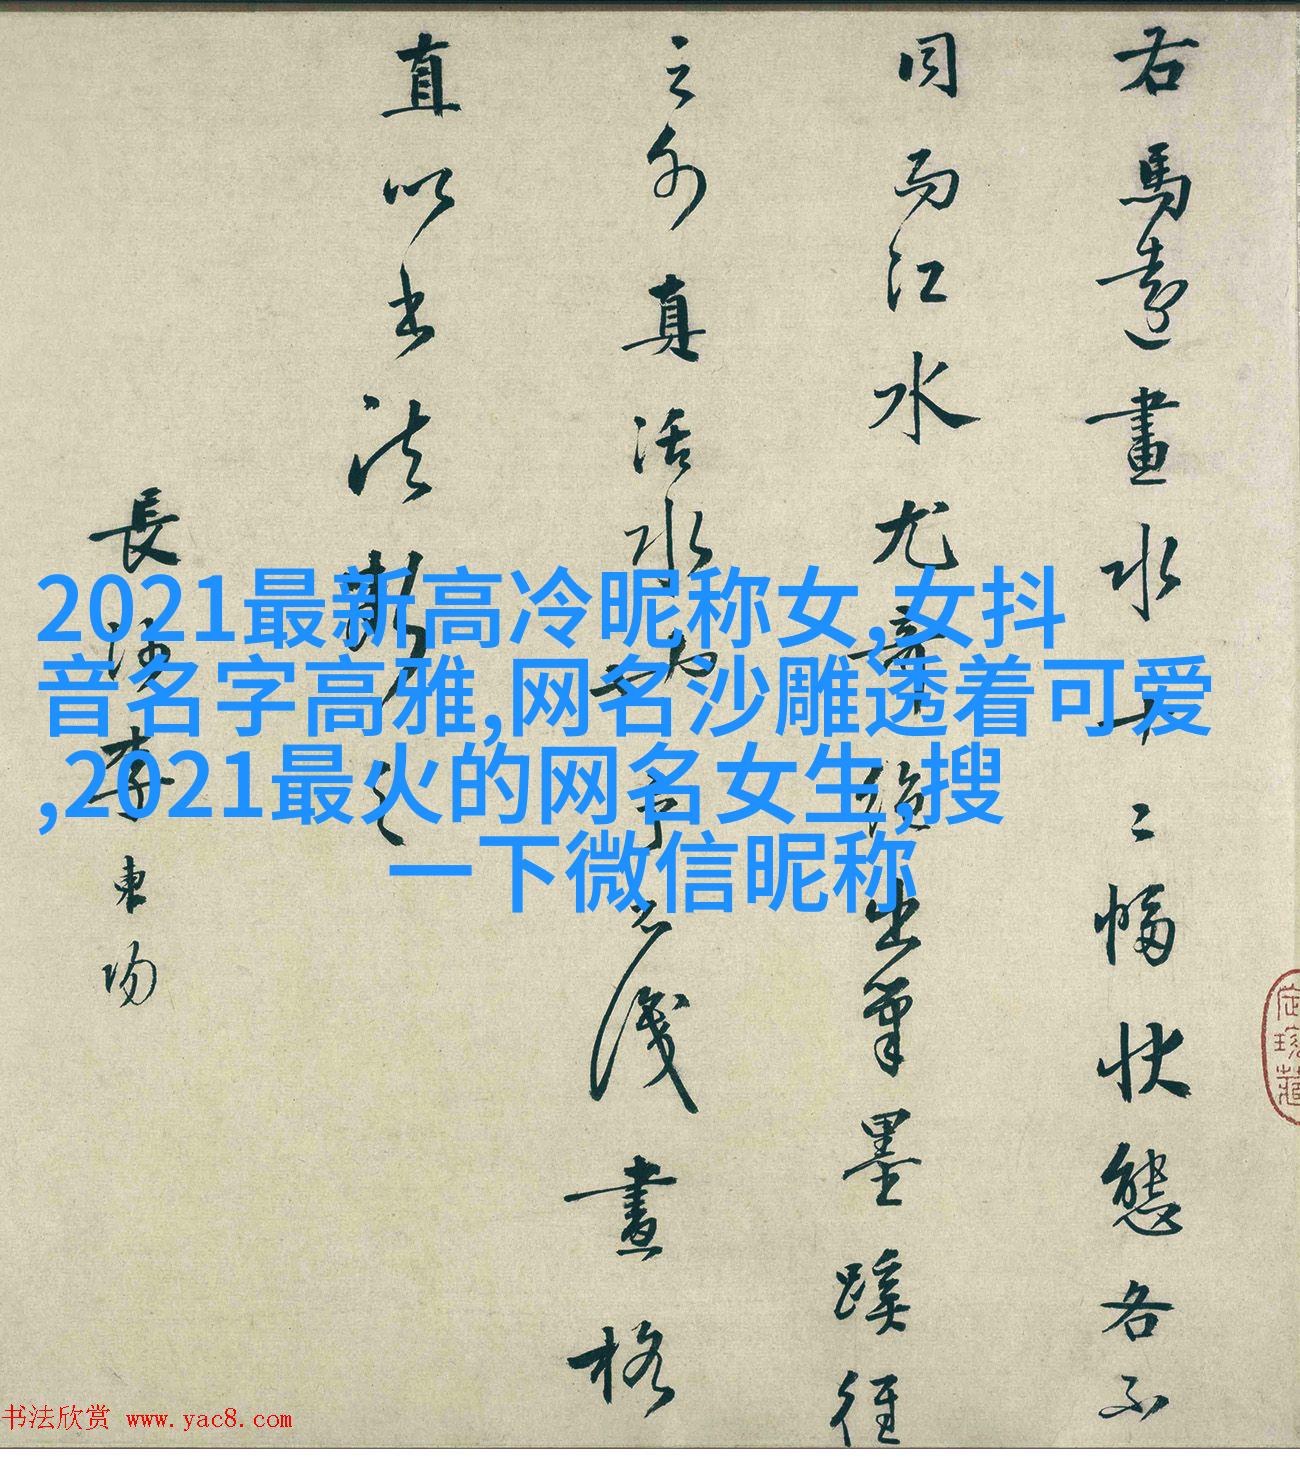 右馬遠畫水十二幅狀態各不
同而江水尤奇絶出筆墨蹊徑
之外真活水也予不識畫格
直以書法斷之
長沙李東陽
2021最新高冷昵称女,女抖
音名字高雅,网名沙雕透着可爱
,2021最火的网名女生,搜
一下微信昵称
书法欣赏 www.yac8.com